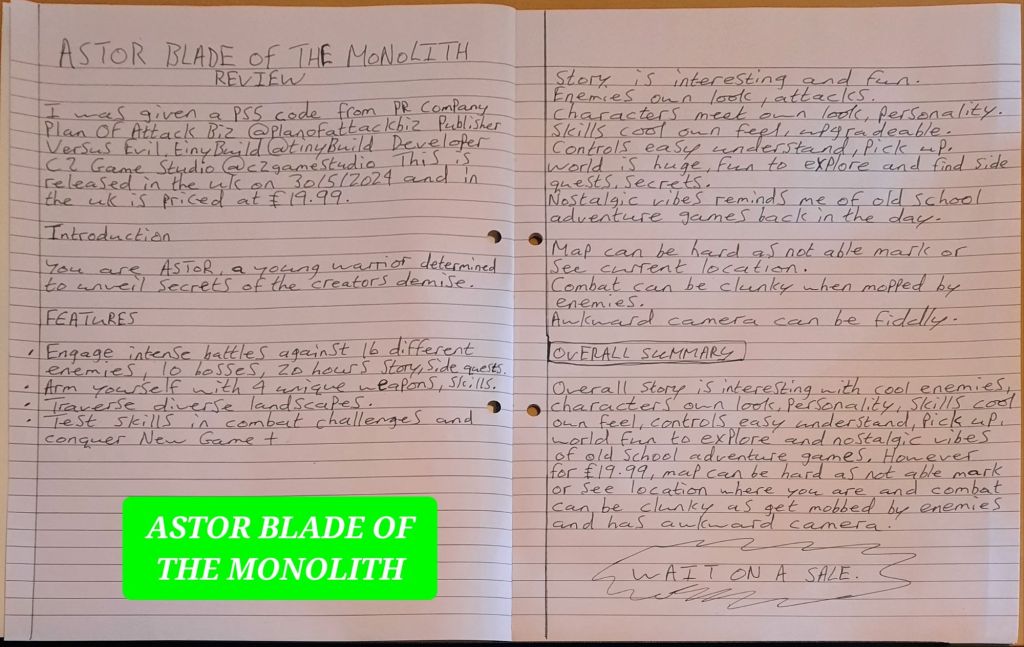 ASTOR BLADE OF THE MONOLITH
REVIEW
I was given a PS5 code from PR Company
Plan Of Attack Biz @planofattackbiz Publisher
Versus Evil, tinyBuild @tinyBuild Developer
C2 Game Studio @c2gamestudio This is
released in the uk on 30/5/2024 and in
the uk is priced at £19.99.
Introduction
You are ASTOR, a young warrior determined
to unveil secrets of the creators demise.
FEATURES
• Engage intense battles against 16 different
enemies, 10 bosses, 20 hours story, side quests.
• Arm yourself with 4 unique weapons, skills.
• Traverse diverse landscapes.
• Test skills in combat challenges and
conquer New Game +
ASTOR BLADE OF
THE MONOLITH
Story is interesting and fun.
Enemies own look, attacks.
Characters meet own look, personality.
Skills cool own feel, upgradeable.
Controls easy understand, pick up.
world is huge, fun to explore and find side
quests, secrets.
Nostalgic vibes reminds me of old school
adventure games back in the day.
Map can be hard as not able mark or
see current location.
Combat can be clunky when mopped by
enemies.
Awkward camera can be fiddly.
OVERALL SUMMARY
Overall story is interesting with cool enemies,
characters own look, personality, skills cool
own feel, controls easy understand, pick up,
world fun to explore and nostalgic vibes
of old school adventure games. However
for £19.99, map can be hard as not able mark
or see location where you are and combat
can be clunky as get mobbed by enemies
and has awkward camera.
WAIT ON A SALE.